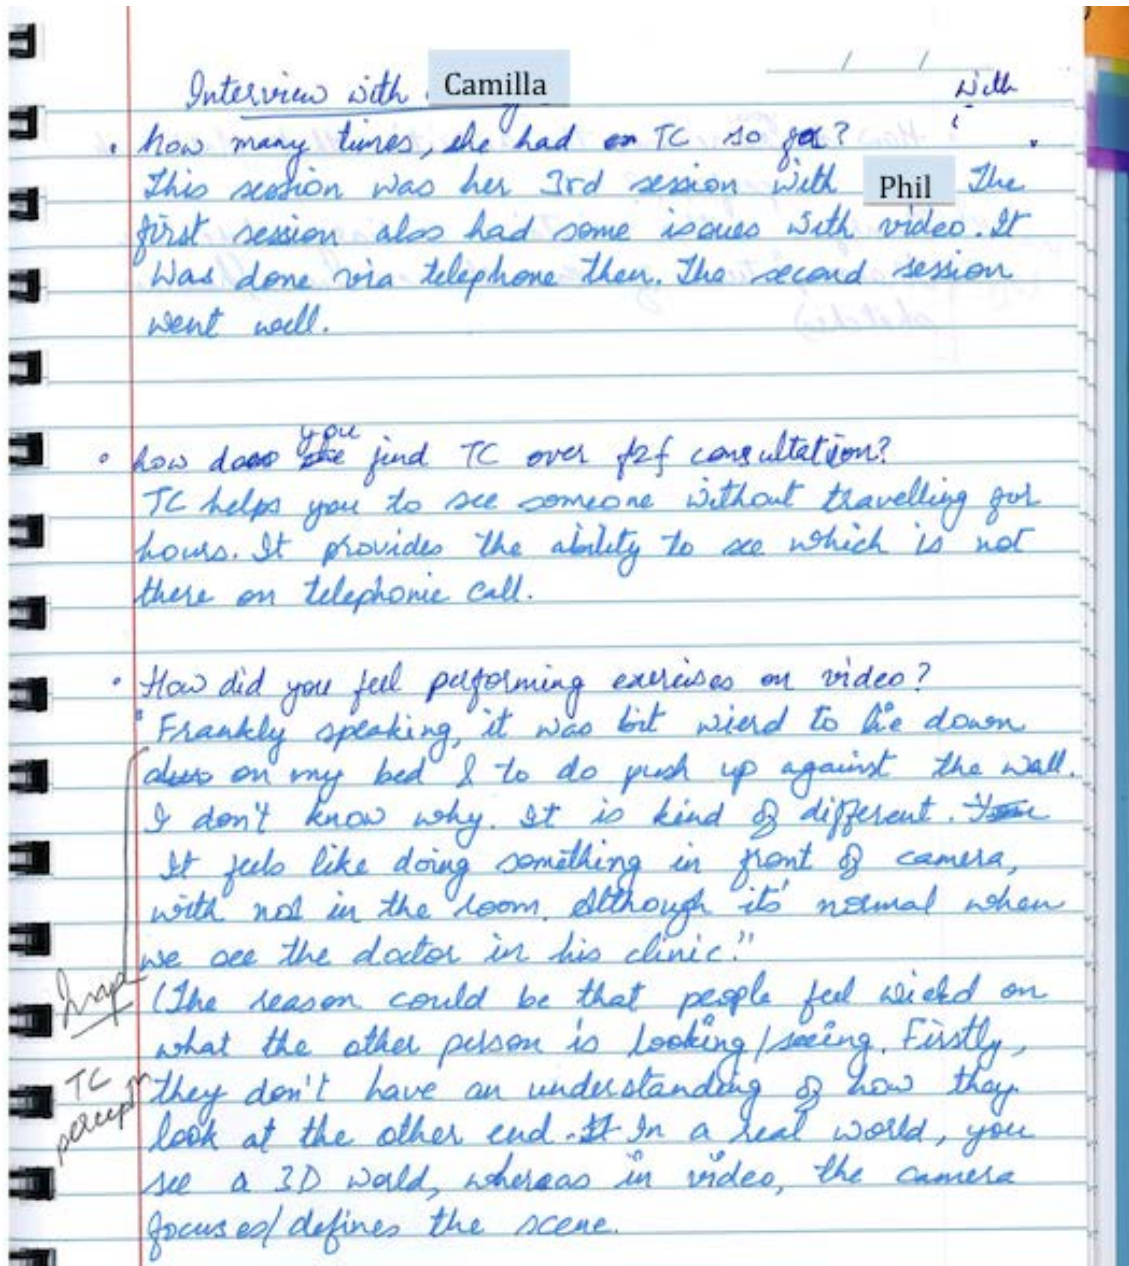 Interview with Camilla
with
• how many times, she had on TC so far?
This session was her 3rd session with Phil The
first session also had some issues with video. It
was done via telephone then. The second session
went well.
you
• how does she find TC over f2f consultation?
TC helps you to see someone without travelling for
hours. It provides the ability to see which is not
there on telephonic call.
• How did you feel performing exercises on video?
"Frankly speaking, it was bit wierd to lie down
on my bed & to do push up against the wall.
I don't know why. It is kind of different.
It feels like doing something in front of camera,
with not in the room. Although its' normal when
we see the doctor in his clinic."
Imp
(The reason could be that people feel wierd on
what the other person is looking/seeing. Firstly,
TC perceptn
they don't have an understanding of how they
look at the other end. It In a real world, you
see a 3D world, whereas in video, the camera
focuses/defines the scene.